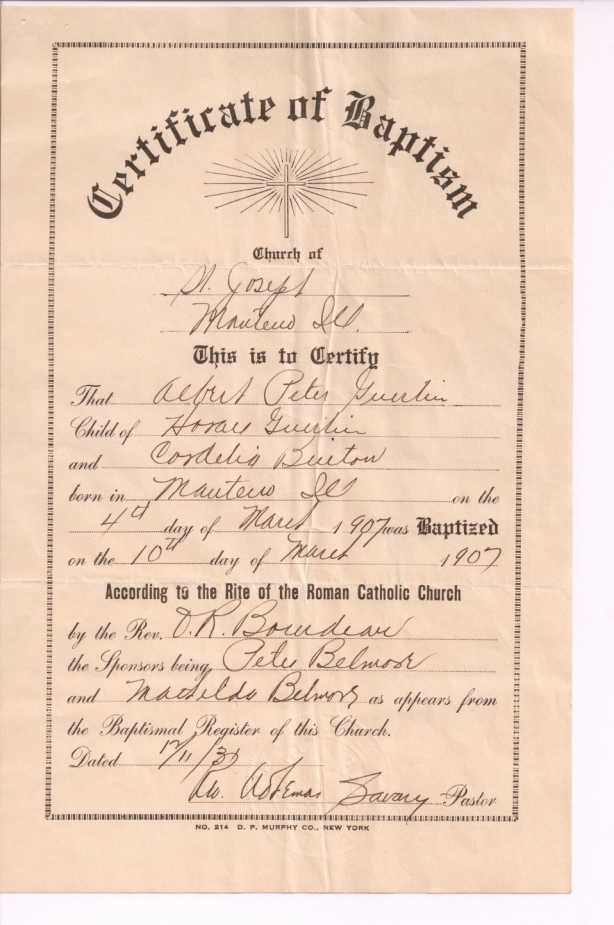 Certificate of Baptism
Church of
St. Joseph
Manteno Ill.
This is to Certify
That Albert Peter Guertin
Child of Horace Guertin
and Cordelia Benton
born in Manteno Ill on the
4th day of March 1907 was Baptized
on the 10th day of March 1907
According to the Rite of the Roman Catholic Church
by the Rev. O. R. Bourdeau
the Sponsors being, Peter Belmore
and Mathilda Belmore as appears from
the Baptismal Register of this Church.
Dated
Rev. Savary Pastor
NO. 214 D. P. MURPHY CO., NEW YORK